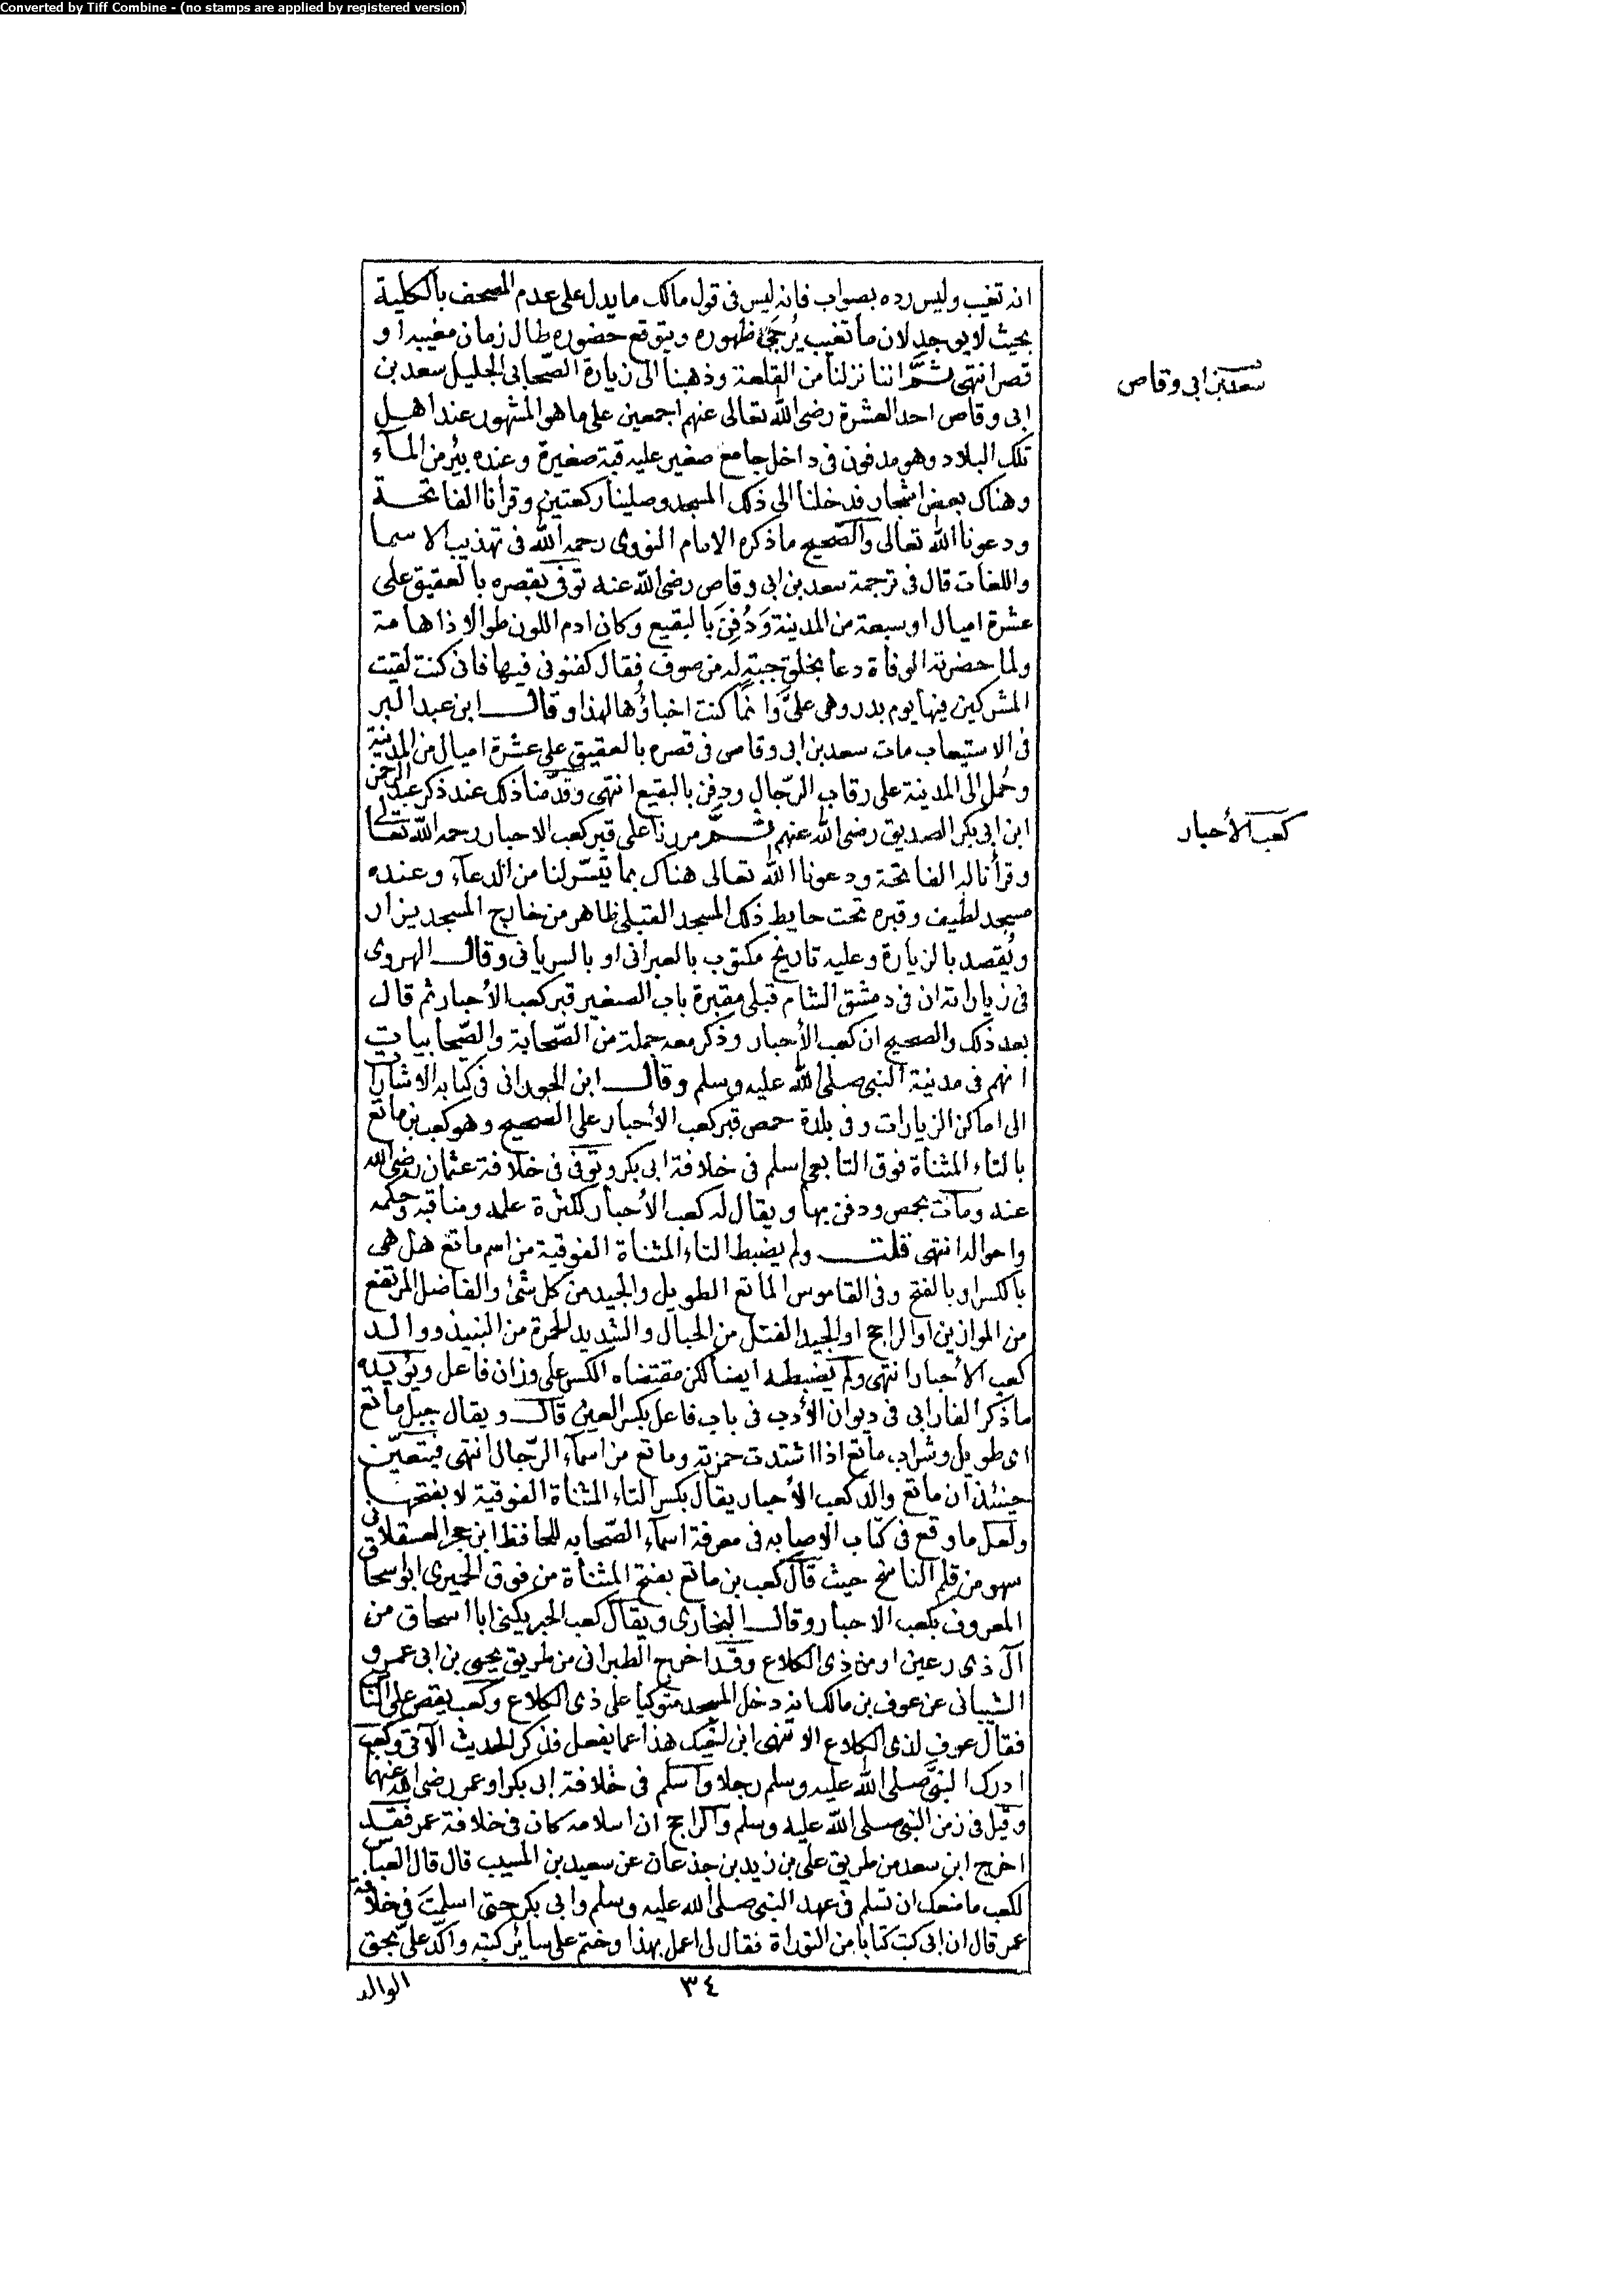 Converted by Tiff Combine - (no stamps are applied by registered version)
انه تغيب وليس رده بصواب فانه ليس فى قول مالك ما يدل على عدم المصحف بالكلية
بحيث لا يوجد لان ما تغيب يُرجى ظهوره ويتوقع حضوره طال زمان مغيبه او
قصر انتهى ثمَّ اننا نزلنا من القلعة وذهبنا الى زيارة الصّحابى الجليل سعد بن
ابى وقاص احد العشرة رضى الله تعالى عنهم اجمعين على ما هو المشهور عند اهل
تلك البلاد وهو مدفون فى داخل جامع صغير عليه قبة صغيرة وعنده بئر من المآء
وهناك بعض اشجار فدخلنا الى ذلك المسجد وصلينا ركعتين وقرأنا الفاتحة
ودعونا الله تعالى والصّحيح ما ذكره الامام النووى رحمه الله فى تهذيب الاسما
واللغات قال فى ترجمة سعد بن ابى وقاص رضى الله عنه توفى بقصره بالعقيق على
عشرة اميال او سبعة من المدينة وَدُفِنَ بالبقيع وكان ادم اللون طوالا ذا هامة
ولما حضرته الوفاة دعا بخلق جبةٍ له من صوف فقال كفنونى فيها فانى كنت لقيت
المشركين فيها يوم بدر وهى علىَّ وانما كنت اخباؤها لهذا وقال ابن عبد البر
فى الاستيعاب مات سعد بن ابى وقاص فى قصره بالعقيق على عشرة اميال من المدينة
وحُمل الى المدينة على رقاب الرّجال ودفن بالبقيع انتهى وقدّمنا ذلك عند ذكر عبد الرحمن
ابن ابى بكر الصديق رضى الله عنهم ثمَّ مررنا على قبر كعب الاحبار رحمه الله تعالى
وقرأنا له الفاتحة ودعونا الله تعالى هناك بما تيسّر لنا من الدعآء وعنده
مسجد لطيف وقبره تحت حايط ذلك المسجد القبلى ظاهر من خارج المسجد يزار
ويُقصد بالزيارة وعليه تاريخ مكتوب بالعبرانى او بالسريانى وقال الهروى
فى زياراته ان فى دمشق الشام قبلى مقبرة باب الصغير قبر كعب الأحبار ثم قال
بعد ذلك والصحيح ان كعب الأحبار وذكر معه جملة من الصّحابة والصّحابيات
انهم فى مدينة النبى صلى الله عليه وسلم وقال ابن الحورانى فى كتابه الاشارات
الى اماكن الزيارات وفى بلدة حمص قبر كعب الأحبار على الصحيح وهو كعب بن ماتع
بالتاء المثناة فوق التابعى اسلم فى خلافة ابى بكر وتوفى فى خلافة عثمان رضى الله
عنه ومات بحمص ودفن بها ويقال له كعب الأحبار لكثرة علمه ومناقبه وحكمه
واحواله انتهى قلت ولم يضبط التاء المثناة الفوقية من اسم ماتع هل هى
بالكسر او بالفتح وفى القاموس الماتع الطويل والجيد من كل شئ والفاضل المرتفع
من الموازين او الراجح او الجيد الفتل من الحبال والشديد الحمرة من النبيذ ووالد
كعب الأحبار انتهى ولم يضبطه ايضا لكن مقتضاه الكسر على وزان فاعل ويؤيده
ما ذكر الفارابى فى ديوان الأدب فى باب فاعل بكسر العين قال ويقال جبل ماتع
اى طويل وشراب ماتع اذا اشتدت حمرته وماتع من اسمآء الرّجال انتهى فيتعيّن
حينئذ ان ماتع والد كعب الأحبار يقال بكسر التاء المثناة الفوقية لا بفتحها
ولعل ما وقع فى كتاب الاصابه فى معرفة اسمآء الصّحابه للحافظ ابن حجر العسقلانى
سهو من قلم الناسخ حيث قال كعب بن ماتع بفتح المثناة من فوق الحميرى ابو اسحاق
المعروف بكعب الاحبار وقال البخارى ويقال كعب الحبر يكنى ابا اسحاق من
آل ذى رعين او من ذى الكلاع وقد اخرج الطبرانى من طريق يحيى بن ابى عمرو
الشيبانى عن عوف بن مالك انه دخل المسجد متوكيا على ذى الكلاع وكعب يقص على الناس
فقال عوف لذى الكلاع الا تنهى ابن اخيك هذا عما يفعل فذكر الحديث الآتى وكعب
ادرك النبىَّ صلى الله عليه وسلم رجلا واسلم فى خلافة ابى بكر او عمر رضى الله عنهما
وقيل فى زمن النبى صلى الله عليه وسلم والراجح ان اسلامه كان فى خلافة عمر فقد
اخرج ابن سعد من طريق على بن زيد بن جذعان عن سعيد بن المسيب قال قال العباس
لكعب ما منعك ان تسلم فى عهد النبى صلى الله عليه وسلم وابى بكر حتى اسلمتَ فى خلافة
عمر قال ان ابى كتب كتابا من التوراة فقال لى اعمل بهذا وختم على سائر كتبه واكّد علىّ بحق
٣٤
الوالد
سعد بن ابى وقاص
كعب الأحبار